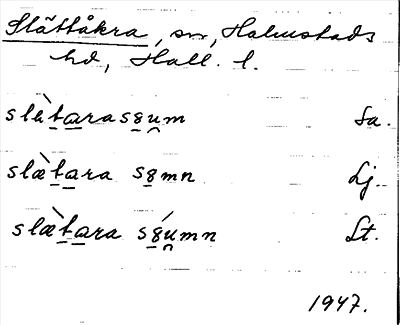 Slättåkra, sn, Halmstads
hd, Hall. l.
slæ̀tarasgum Sa.
slæ̀tara sgmn Lj.
slæ̀tara sgúmn Lt.
1947.